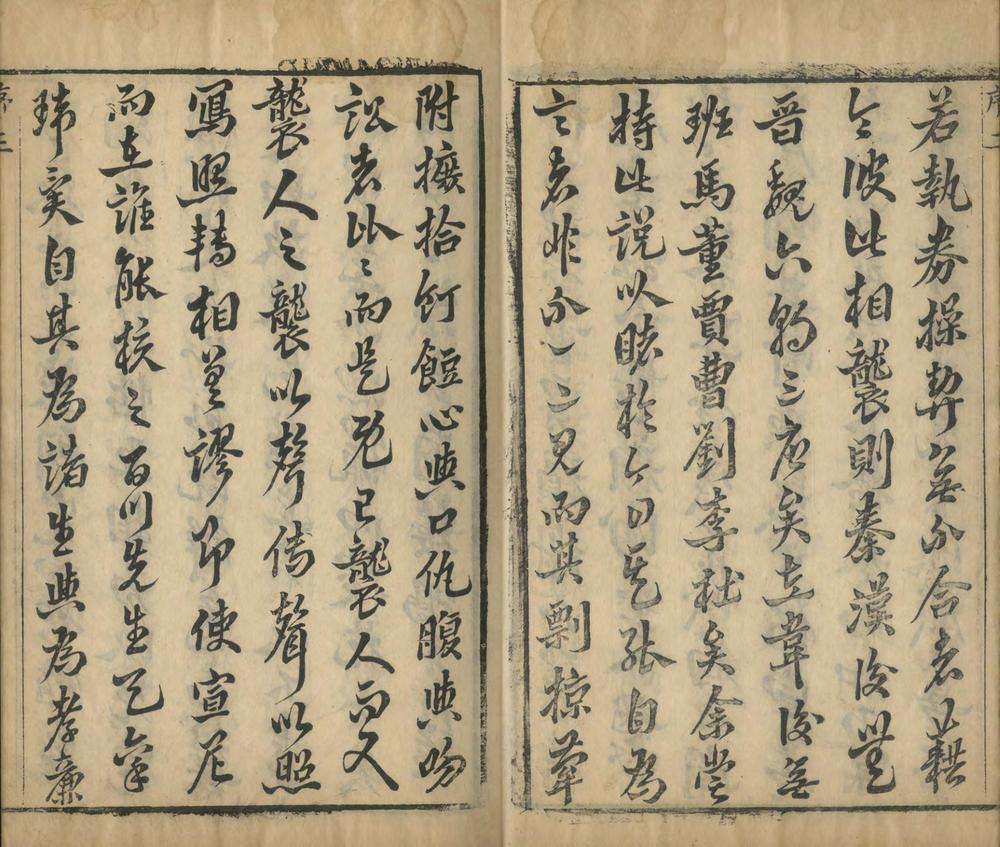 序二
若執券操契無不合者藉
令彼此相襲則秦漢後無
晉魏六朝三唐矣左韋後無
班馬董賈曹劉李杜矣余嘗
持此說以睹於今日能自為
言者非不一二見而其剽掠
附摭拾飣餖心與口仇腹與吻
訟者比〻而是既已襲人而又
襲人之襲以聲傳聲以照
寫照轉相差謬即使宣尼
而在誰能核之百川先生
瑋異自其為諸生與為孝廉
序三